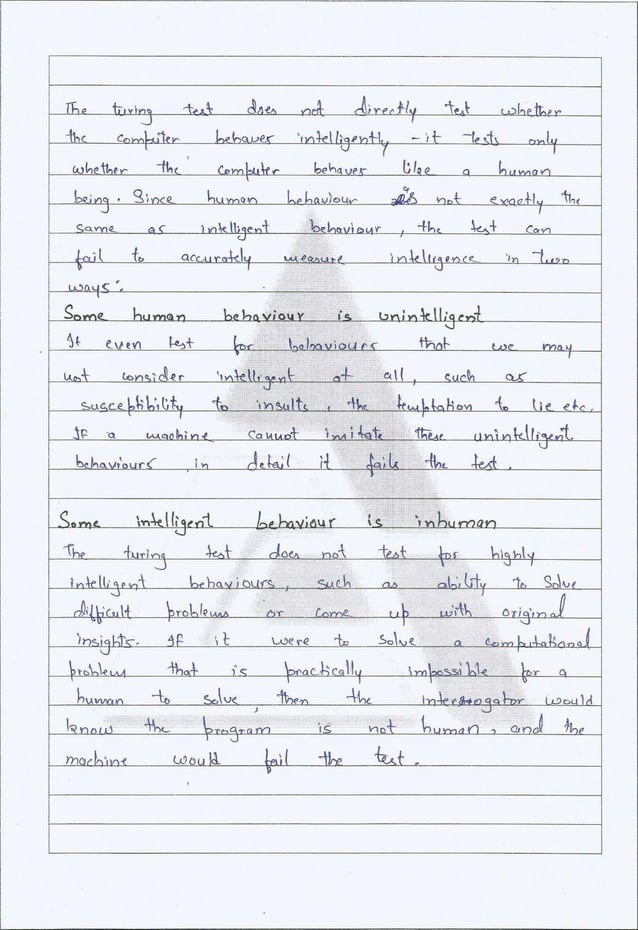 The turing test does not directly test whether
the computer behaves intelligently - it tests only
whether the computer behaves like a human
being. Since human behaviour is not exactly the
same as intelligent behaviour, the test can
fail to accurately measure intelligence in two
ways:
Some human behaviour is unintelligent
It even test for behaviours that we may
not consider intelligent at all, such as
susceptibility to insults, the temptation to lie etc.
If a machine cannot imitate these unintelligent
behaviours in detail it fails the test.
Some intelligent behaviour is inhuman
The turing test does not test for highly
intelligent behaviours, such as ability to Solve
difficult problems or come up with original
insights. If it were to solve a computational
problem that is practically impossible for a
human to solve, then the interrogator would
know the program is not human, and the
machine would fail the test.